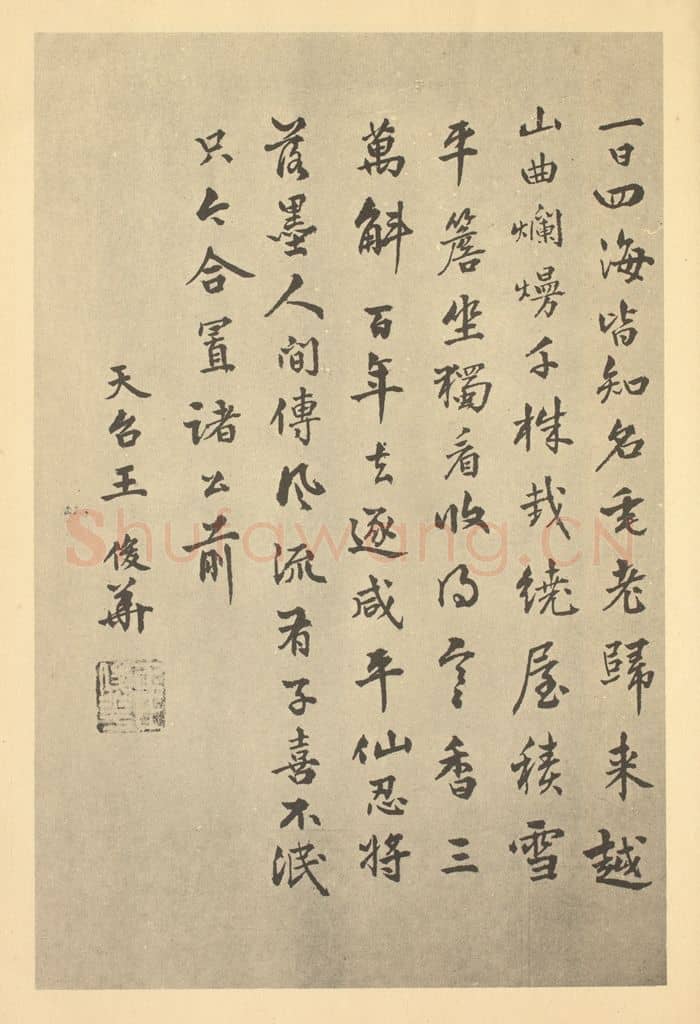 一日四海皆知名毛老歸来越
山曲爛熳千株栽繞屋積雪
平簷坐獨看收得寒香三
萬斛百年去逐咸平仙忍將
落墨人間傳風流有子喜不泯
只今合置諸公前
天台王俊華
Shufawang.CN